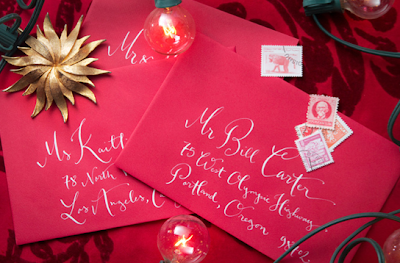 Mrs
Ms Kaitl
78 North
Los Angeles, C
Mr Bill Carter
75 West Olympic Highway
Portland, Oregon